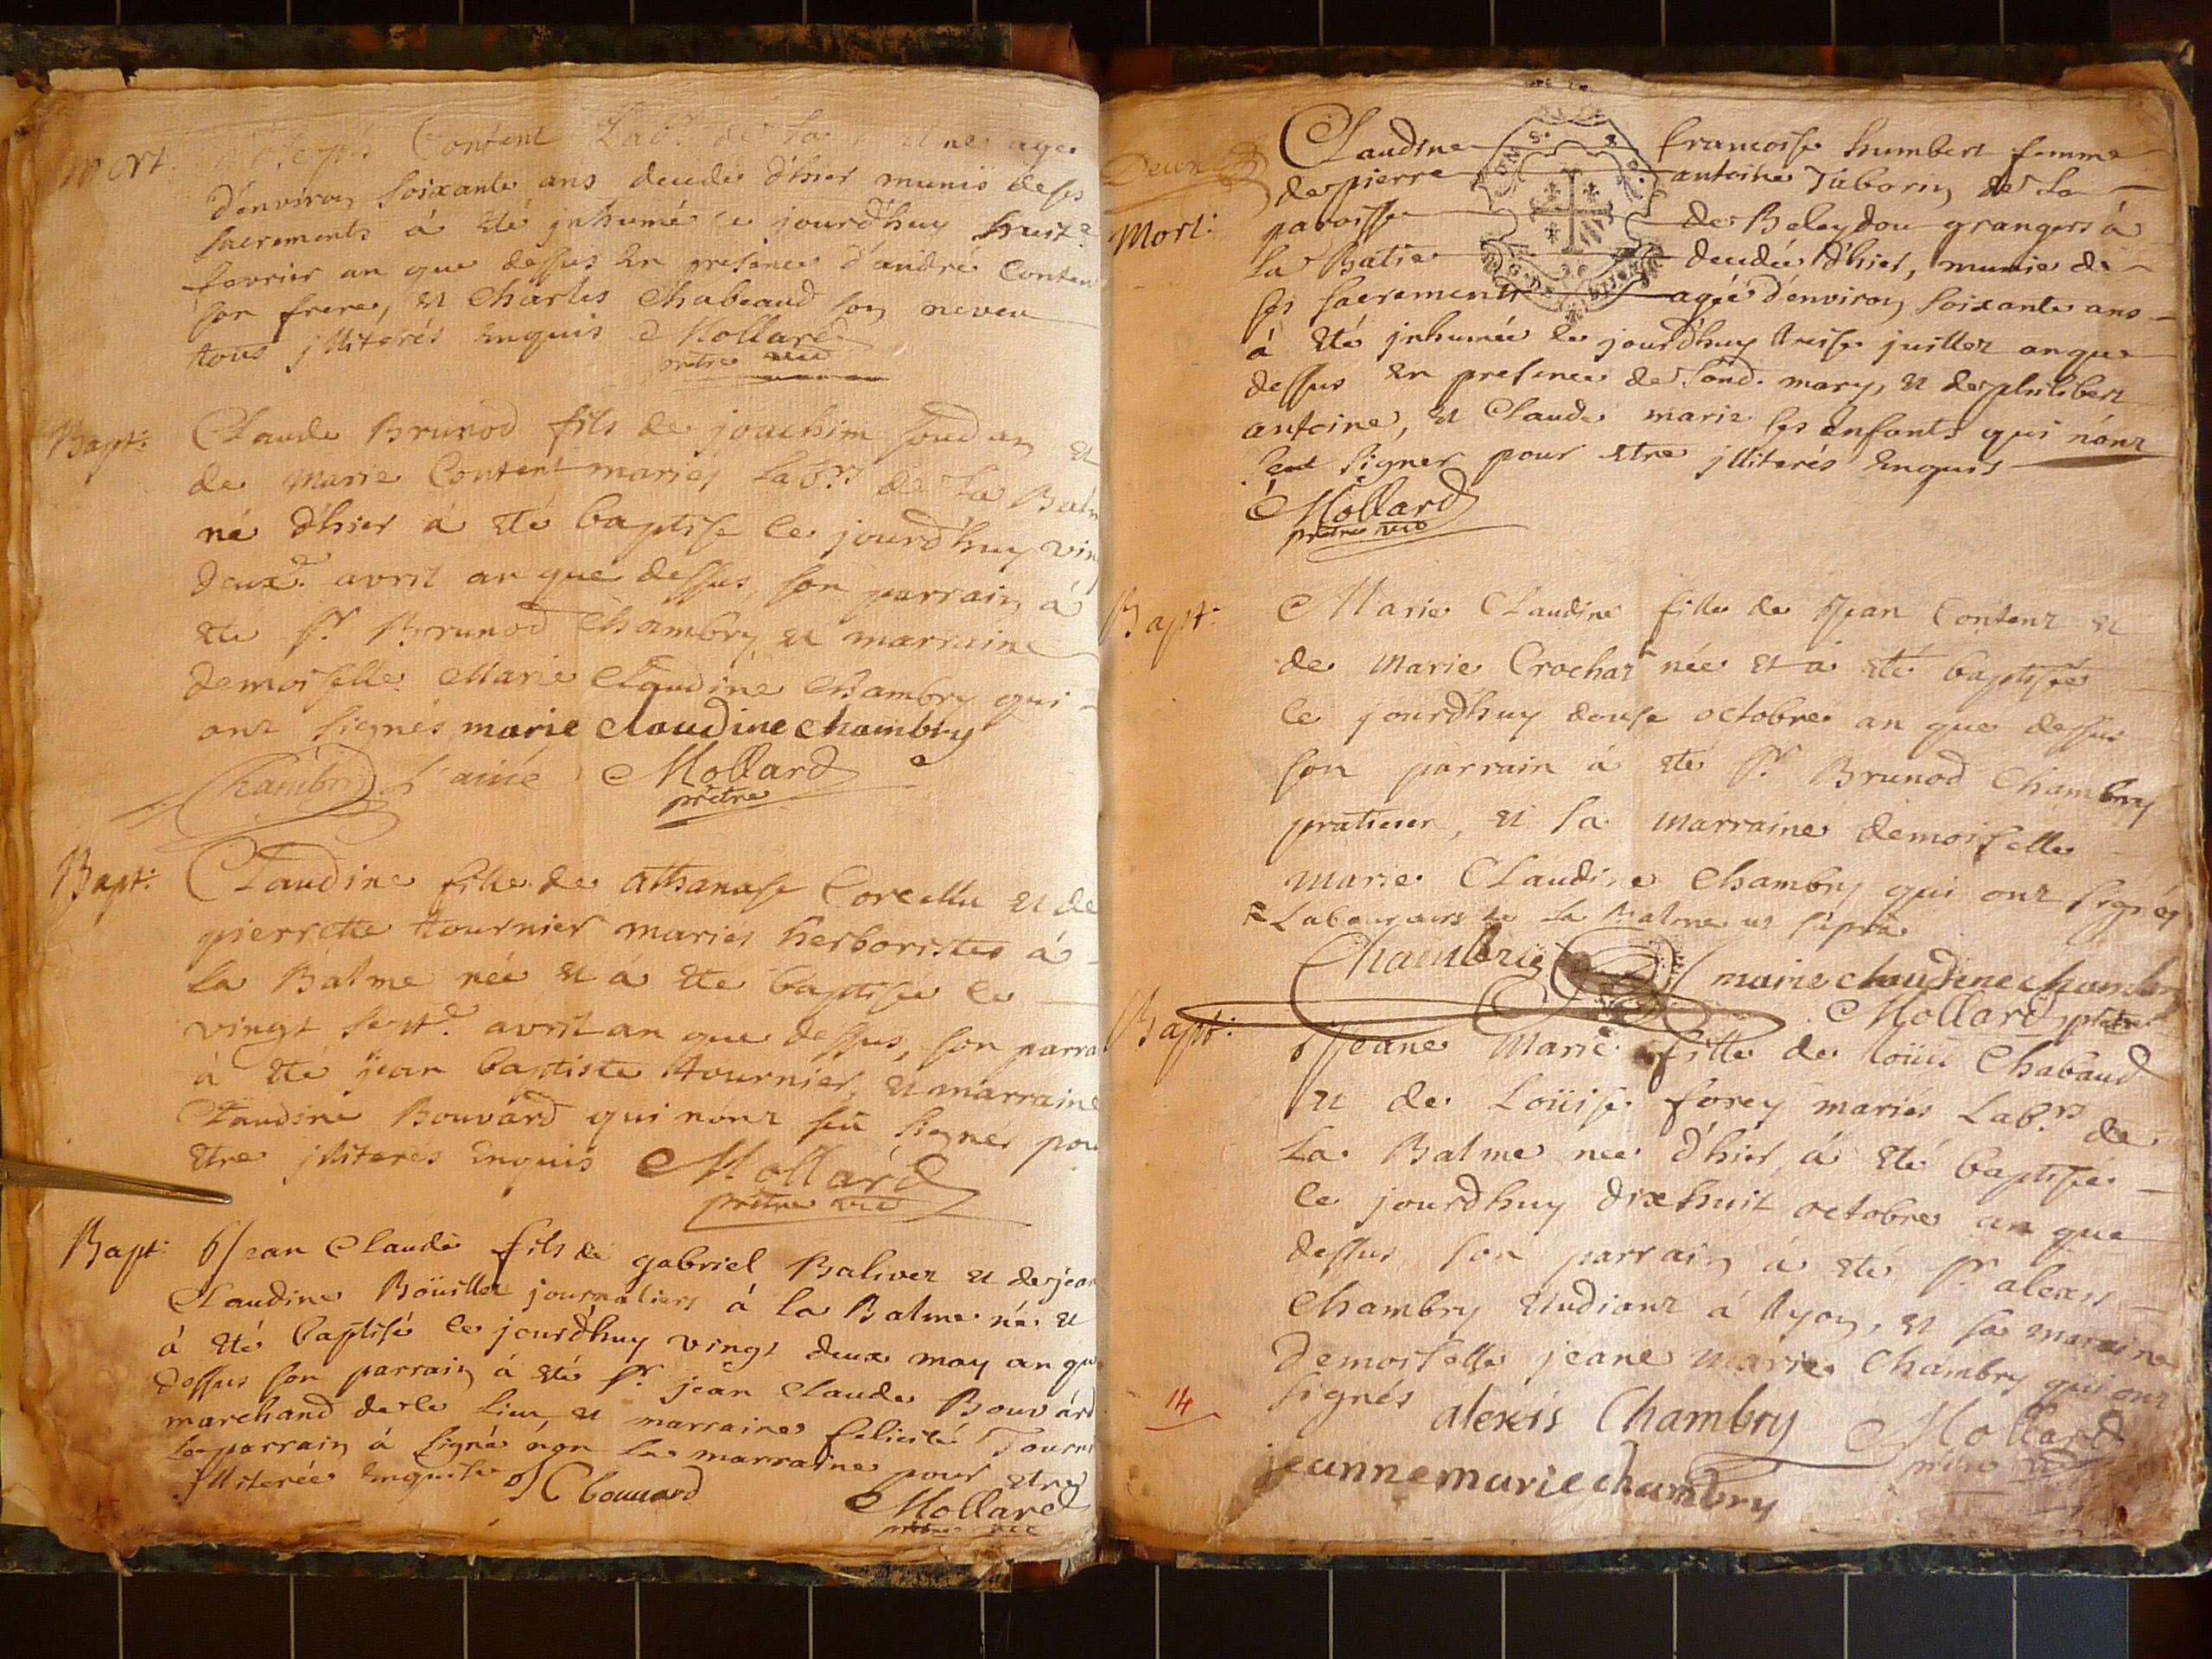 mort. Joseph Content Lab.r de la Balme agé
d'environ soixante ans decedé d'hier munis de ses
sacrements á eté jnhumé ce jourd'huy huit.e
fevrier an que dessus En presence d'andré Conten
son frere, et Charles Chabeaud son neveu
tous jlliterés Enquis Mollard
pretre vic
Bapt: Claude Brunod fils de joachim et
de Marie Content mariés Lab.rs de La Balm
né d'hier á eté baptise ce jourd'huy vin
deux.e avril an que dessus, son parrain á
eté s.r Brunod Chambry et marraine
demoiselle Marie Claudine Chambry qui
ont signés marie claudine chambry
Chambry l'ainé Mollard
prêtre
Bapt: Claudine fille de athanase Corcellu et de
pierrette tournier mariés herboristes á
la Balme née et á eté baptisée le
vingt sept.e avril an que dessus, son parra
á eté jean baptiste tournier, et marraine
Claudine Bouvard qui n'ont seu signer pou
etre jlliterés Enquis Mollard
prêtre vic
Bapt: Jean Claude fils de gabriel Balivet et de jean
Claudine Boüillet journaliers á la Balme né et
á eté baptisé ce jourdhuy vingt deux may an qu
dessus son parrain á eté s.r jean Claude Bouvard
marchand de ce lieu, et marraine felicité Tourn
le parrain á signé non la marraine pour etre
jlliterée Enquise JC bouvard
Mollard
prêtre vic
Claudine francoise humbert femme
de pierre antoine Taborin de la
Mort: paroisse de Beleydou grangers á
la Batie decedée d'hier, munie de
ses sacrements agéé d'environ soixante ans
á eté jnhumée ce jourd'huy treise juillet an que
dessus En presence de sond. mary, et de philibert
antoine, et Claude marie ses enfants qui n'ont
seut signer pour etre jlliterés Enquis
Mollard
prêtre vic
Bapt: Marie Claudine fille de Jean Content et
de Marie Crochat née et á eté baptisée
ce jourdhuy douse octobre an que dessus
son parrain á eté s.r Brunod Chambry
praticien, et sa marraine demoiselle
Marie Claudine Chambry qui ont signés
Laboureurs de la Balme ut suprà
Chambry
marie claudine chambry
Mollard prêtre
Bapt: Jeane Marie fille de Loüis Chabaud
et de Loüise forey mariés Lab.rs de
La Balme née d'hier, á eté baptisée
ce jourdhuy dixhuit octobre an que
dessus son parrain á eté s.r alexis
Chambry etudiant á lyon, et sa marraine
Demoiselle jeane marie Chambry qui ont
14 signés alexis Chambry Mollard
jeanne marie chambry